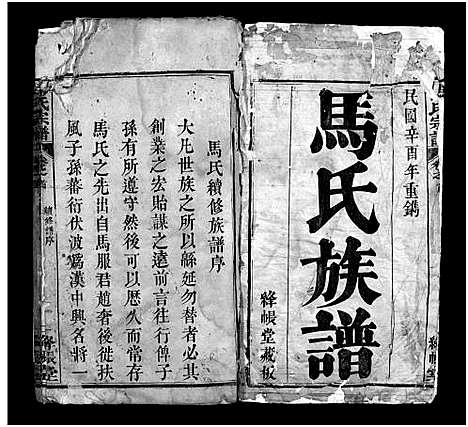 民國辛酉年重鐫
馬氏族譜
絳帳堂藏板
馬氏續修族譜序
大凡世族之所以緜延勿替者必其
創業之宏貽謀之遠前言往行俾子
孫有所遵守然後可以歷久而常存
馬氏之先出自馬服君趙奢後從扶
風子孫蕃衍伏波爲漢中興名將一
氏宗譜
續修譜序
絳帳堂